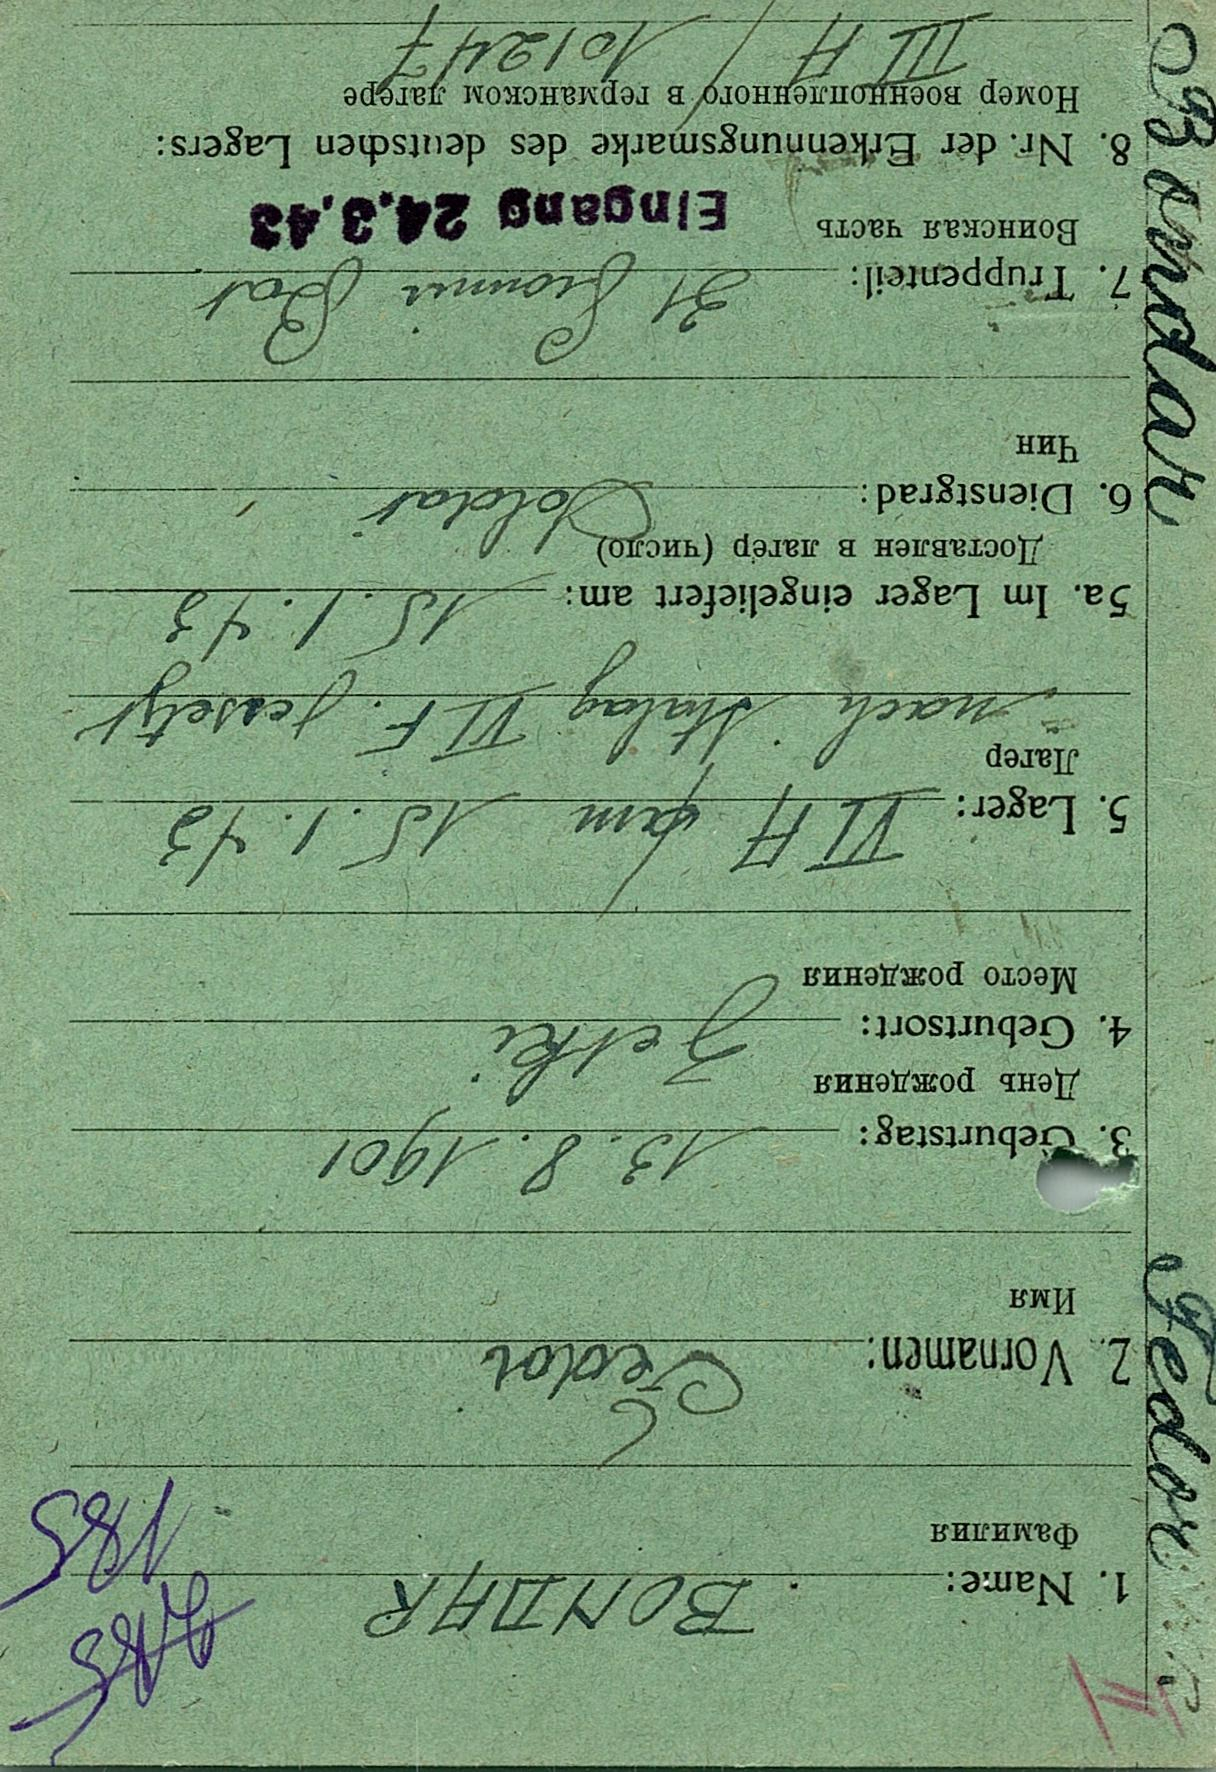 185
1. Name: BONDAR
Фамилия
2. Vornamen: Fedor
Имя
3. Geburtstag: 13.8.1901
День рождения
4. Geburtsort:
Место рождения
5. Lager: VI A am 15.1.43
Лагер
nach Stalag VI F.
5a. Im Lager eingeliefert am: 15.1.43
Доставлен в лагер (число)
6. Dienstgrad: Soldat
Чин
7. Truppenteil: 31 Pionier Bat
Воинская часть
Eingang 24.3.43
8. Nr. der Erkennungsmarke des deutschen Lagers:
Номер военнопленного в германском лагере
III A / 101247
Bondar Fedor